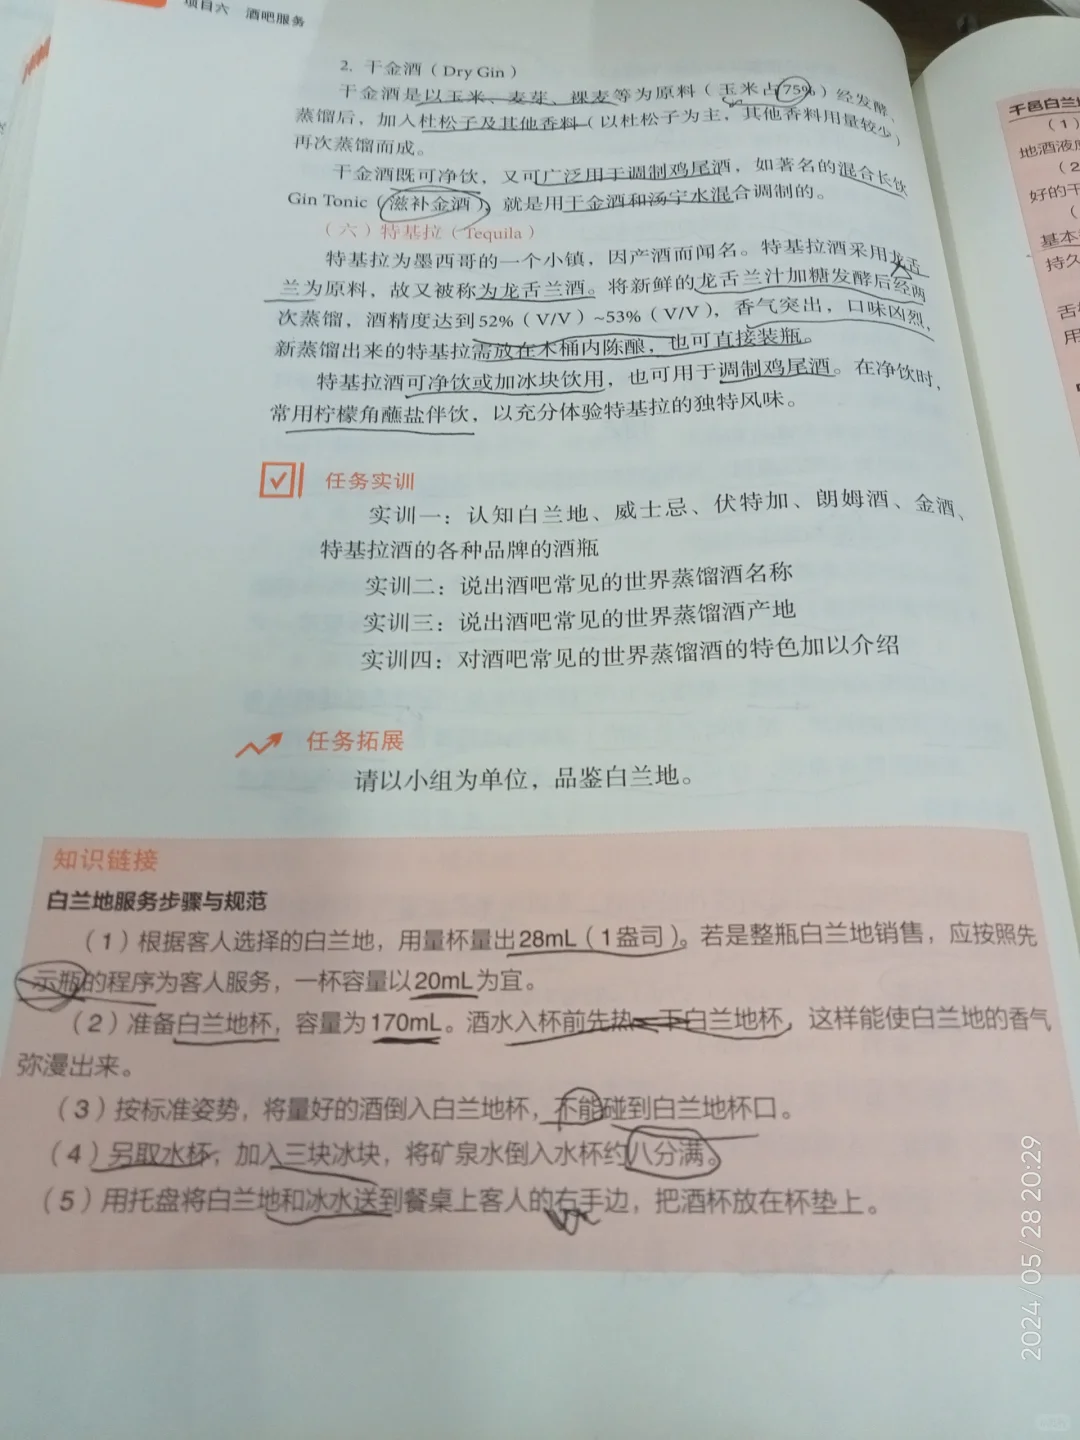 项目六 酒吧服务
2. 干金酒（Dry Gin）
干金酒是以玉米、麦芽、裸麦等为原料（玉米占75%）经发酵、
蒸馏后，加入杜松子及其他香料（以杜松子为主，其他香料用量较少）
再次蒸馏而成。
干金酒既可净饮，又可广泛用于调制鸡尾酒，如著名的混合长饮
Gin Tonic（滋补金酒），就是用干金酒和汤宁水混合调制的。
（六）特基拉（Tequila）
特基拉为墨西哥的一个小镇，因产酒而闻名。特基拉酒采用龙舌
兰为原料，故又被称为龙舌兰酒。将新鲜的龙舌兰汁加糖发酵后经两
次蒸馏，酒精度达到52%（V/V）~53%（V/V），香气突出，口味凶烈，
新蒸馏出来的特基拉需放在木桶内陈酿，也可直接装瓶。
特基拉酒可净饮或加冰块饮用，也可用于调制鸡尾酒。在净饮时，
常用柠檬角蘸盐伴饮，以充分体验特基拉的独特风味。
任务实训
实训一：认知白兰地、威士忌、伏特加、朗姆酒、金酒、
特基拉酒的各种品牌的酒瓶
实训二：说出酒吧常见的世界蒸馏酒名称
实训三：说出酒吧常见的世界蒸馏酒产地
实训四：对酒吧常见的世界蒸馏酒的特色加以介绍
任务拓展
请以小组为单位，品鉴白兰地。
知识链接
白兰地服务步骤与规范
（1）根据客人选择的白兰地，用量杯量出28mL（1盎司）。若是整瓶白兰地销售，应按照先
示瓶的程序为客人服务，一杯容量以20mL为宜。
（2）准备白兰地杯，容量为170mL。酒水入杯前先热一下白兰地杯，这样能使白兰地的香气
弥漫出来。
（3）按标准姿势，将量好的酒倒入白兰地杯，不能碰到白兰地杯口。
（4）另取水杯，加入三块冰块，将矿泉水倒入水杯约八分满。
（5）用托盘将白兰地和冰水送到餐桌上客人的右手边，把酒杯放在杯垫上。
干邑白兰
（1）
地酒液
（2
好的干
（
基本
持久
舌
用
2024/05/28 20:29